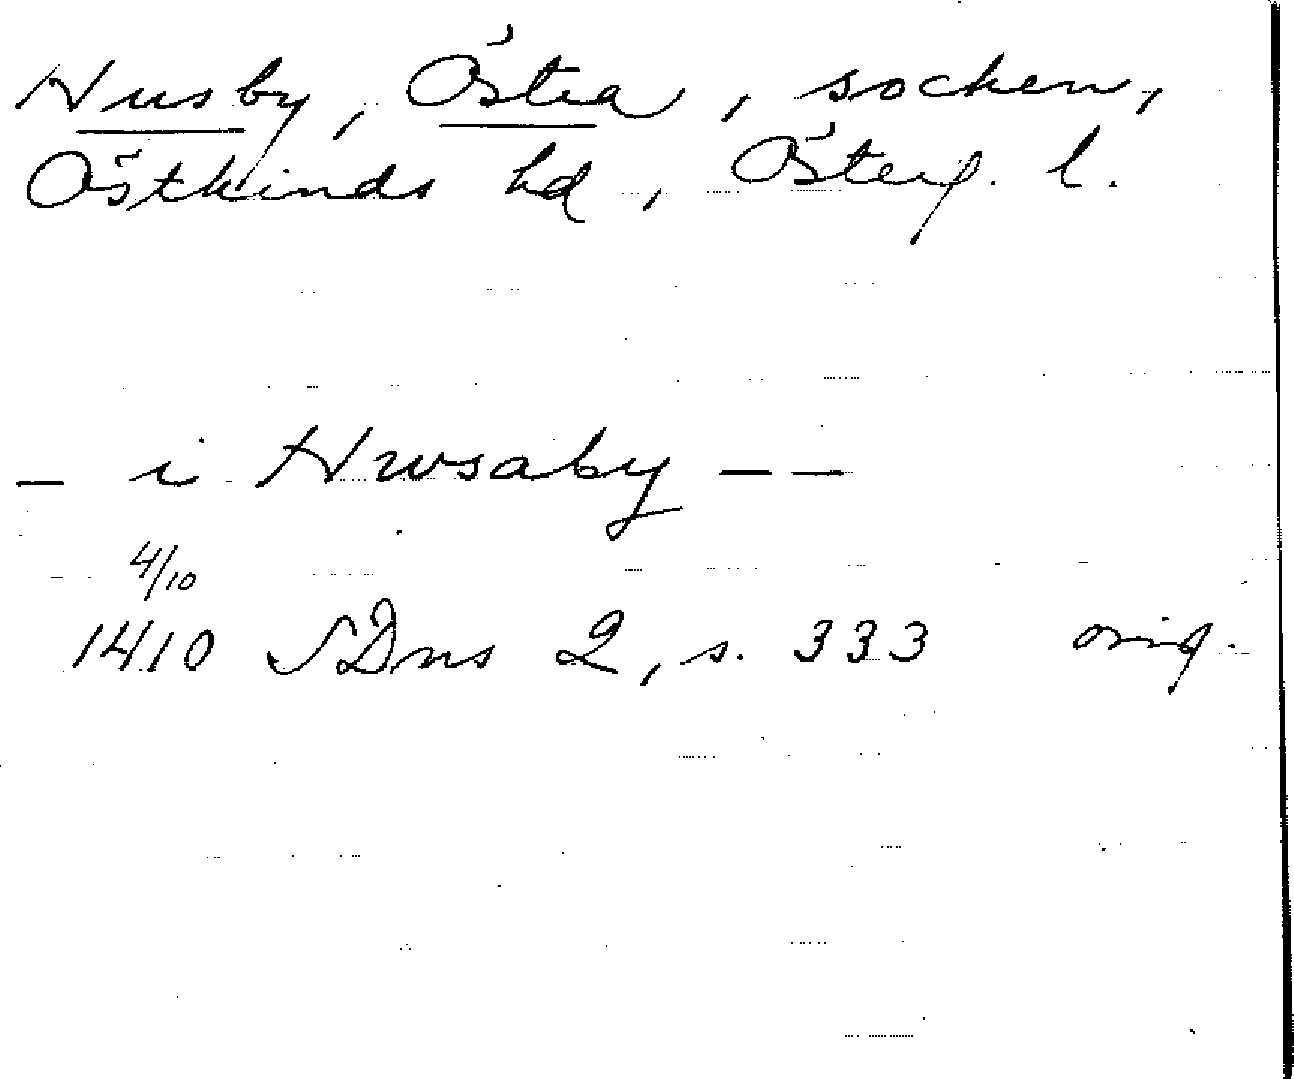 Husby, Östra, socken,
Östkinds hd, Österg. l.
- i Hwsaby - -
4/10
1410 SDns 2, s. 333 orig.